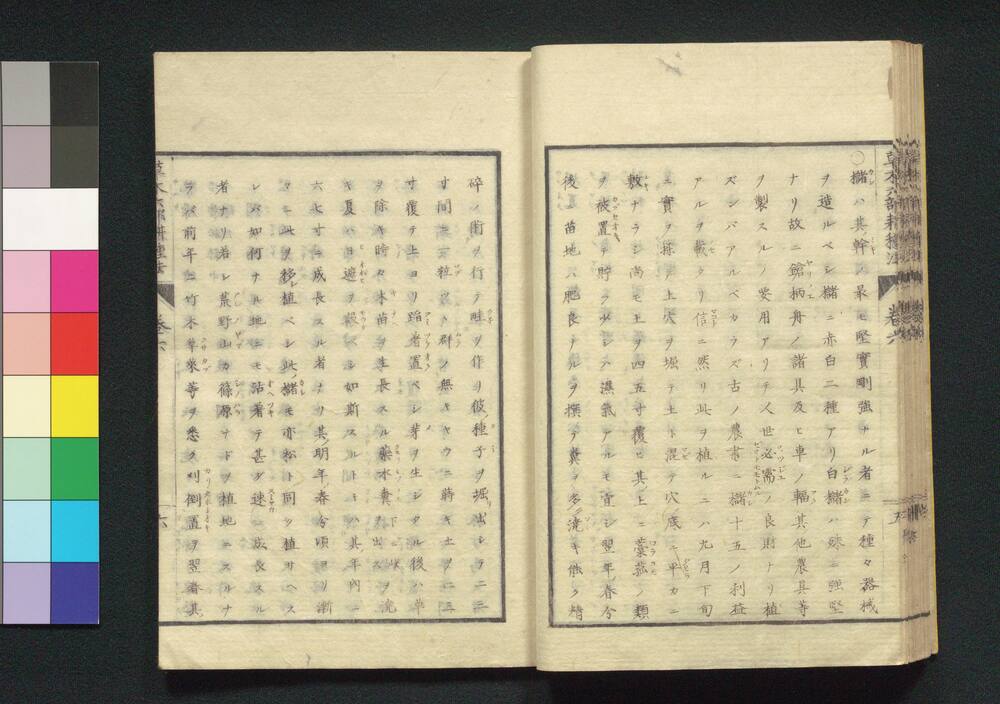 ○櫧ハ其幹ノ最モ堅實剛強ナル者ニテ種々器械
ヲ造ルベシ櫧ニ赤白二種アリ白櫧ハ殊ニ強堅
ナリ故ニ鎗柄舟ノ諸具及ヒ車ノ輻其他農具等
ヲ製スルノ要用アリテ人世必需ノ良財ナリ植
ズンバアルベカラズ古ノ農書ニ櫧十五ノ利益
アルヲ載タリ信ニ然リ此ヲ植ルニハ九月下旬
ニ實ヲ採テ土穴ヲ堀テ土ト混テ穴底ニ平カニ
敷ナラシ尚モ土ヲ四五寸覆ヒ其上ニ藁菰ノ類
ヲ被置テ貯フ少シク濕氣アルモ宜シ翌年春分
後ニ苗地ハ肥良ナルヲ撰テ糞ヲ多ク澆キ能ク耕
碎ノ閙ヲ行テ畦ヲ作リ彼ノ種子ヲ堀出シテ二三
寸間ニ一粒ツヽ群ノ無キヤウニ蒔キ土ヲ二三
寸覆テ上ヨリ蹈着置ベシ芽ヲ生シタル後ハ草
ヲ除キ時々木苗ヲ生長スル藥水糞ヲ澆
キ夏ハ日遮ヲ設ベシ如斯スルトキハ其年內ニ
六七寸ニ成長スル者ナリ其明年春分頃ヨリ漸
々ニ此ヲ移シ植ベシ此櫧モ亦松ト同ク植サヘス
レバ如何ナル地ニモ活着テ甚タ速ニ成長スル
者ナリ若シ荒野山カ篠原ナドヲ植地ニスルナ
ラバ前年ニ竹木草萊等ヲ悉ク刈倒置ヲ翌春其
草木六部耕種法
卷六
五
六